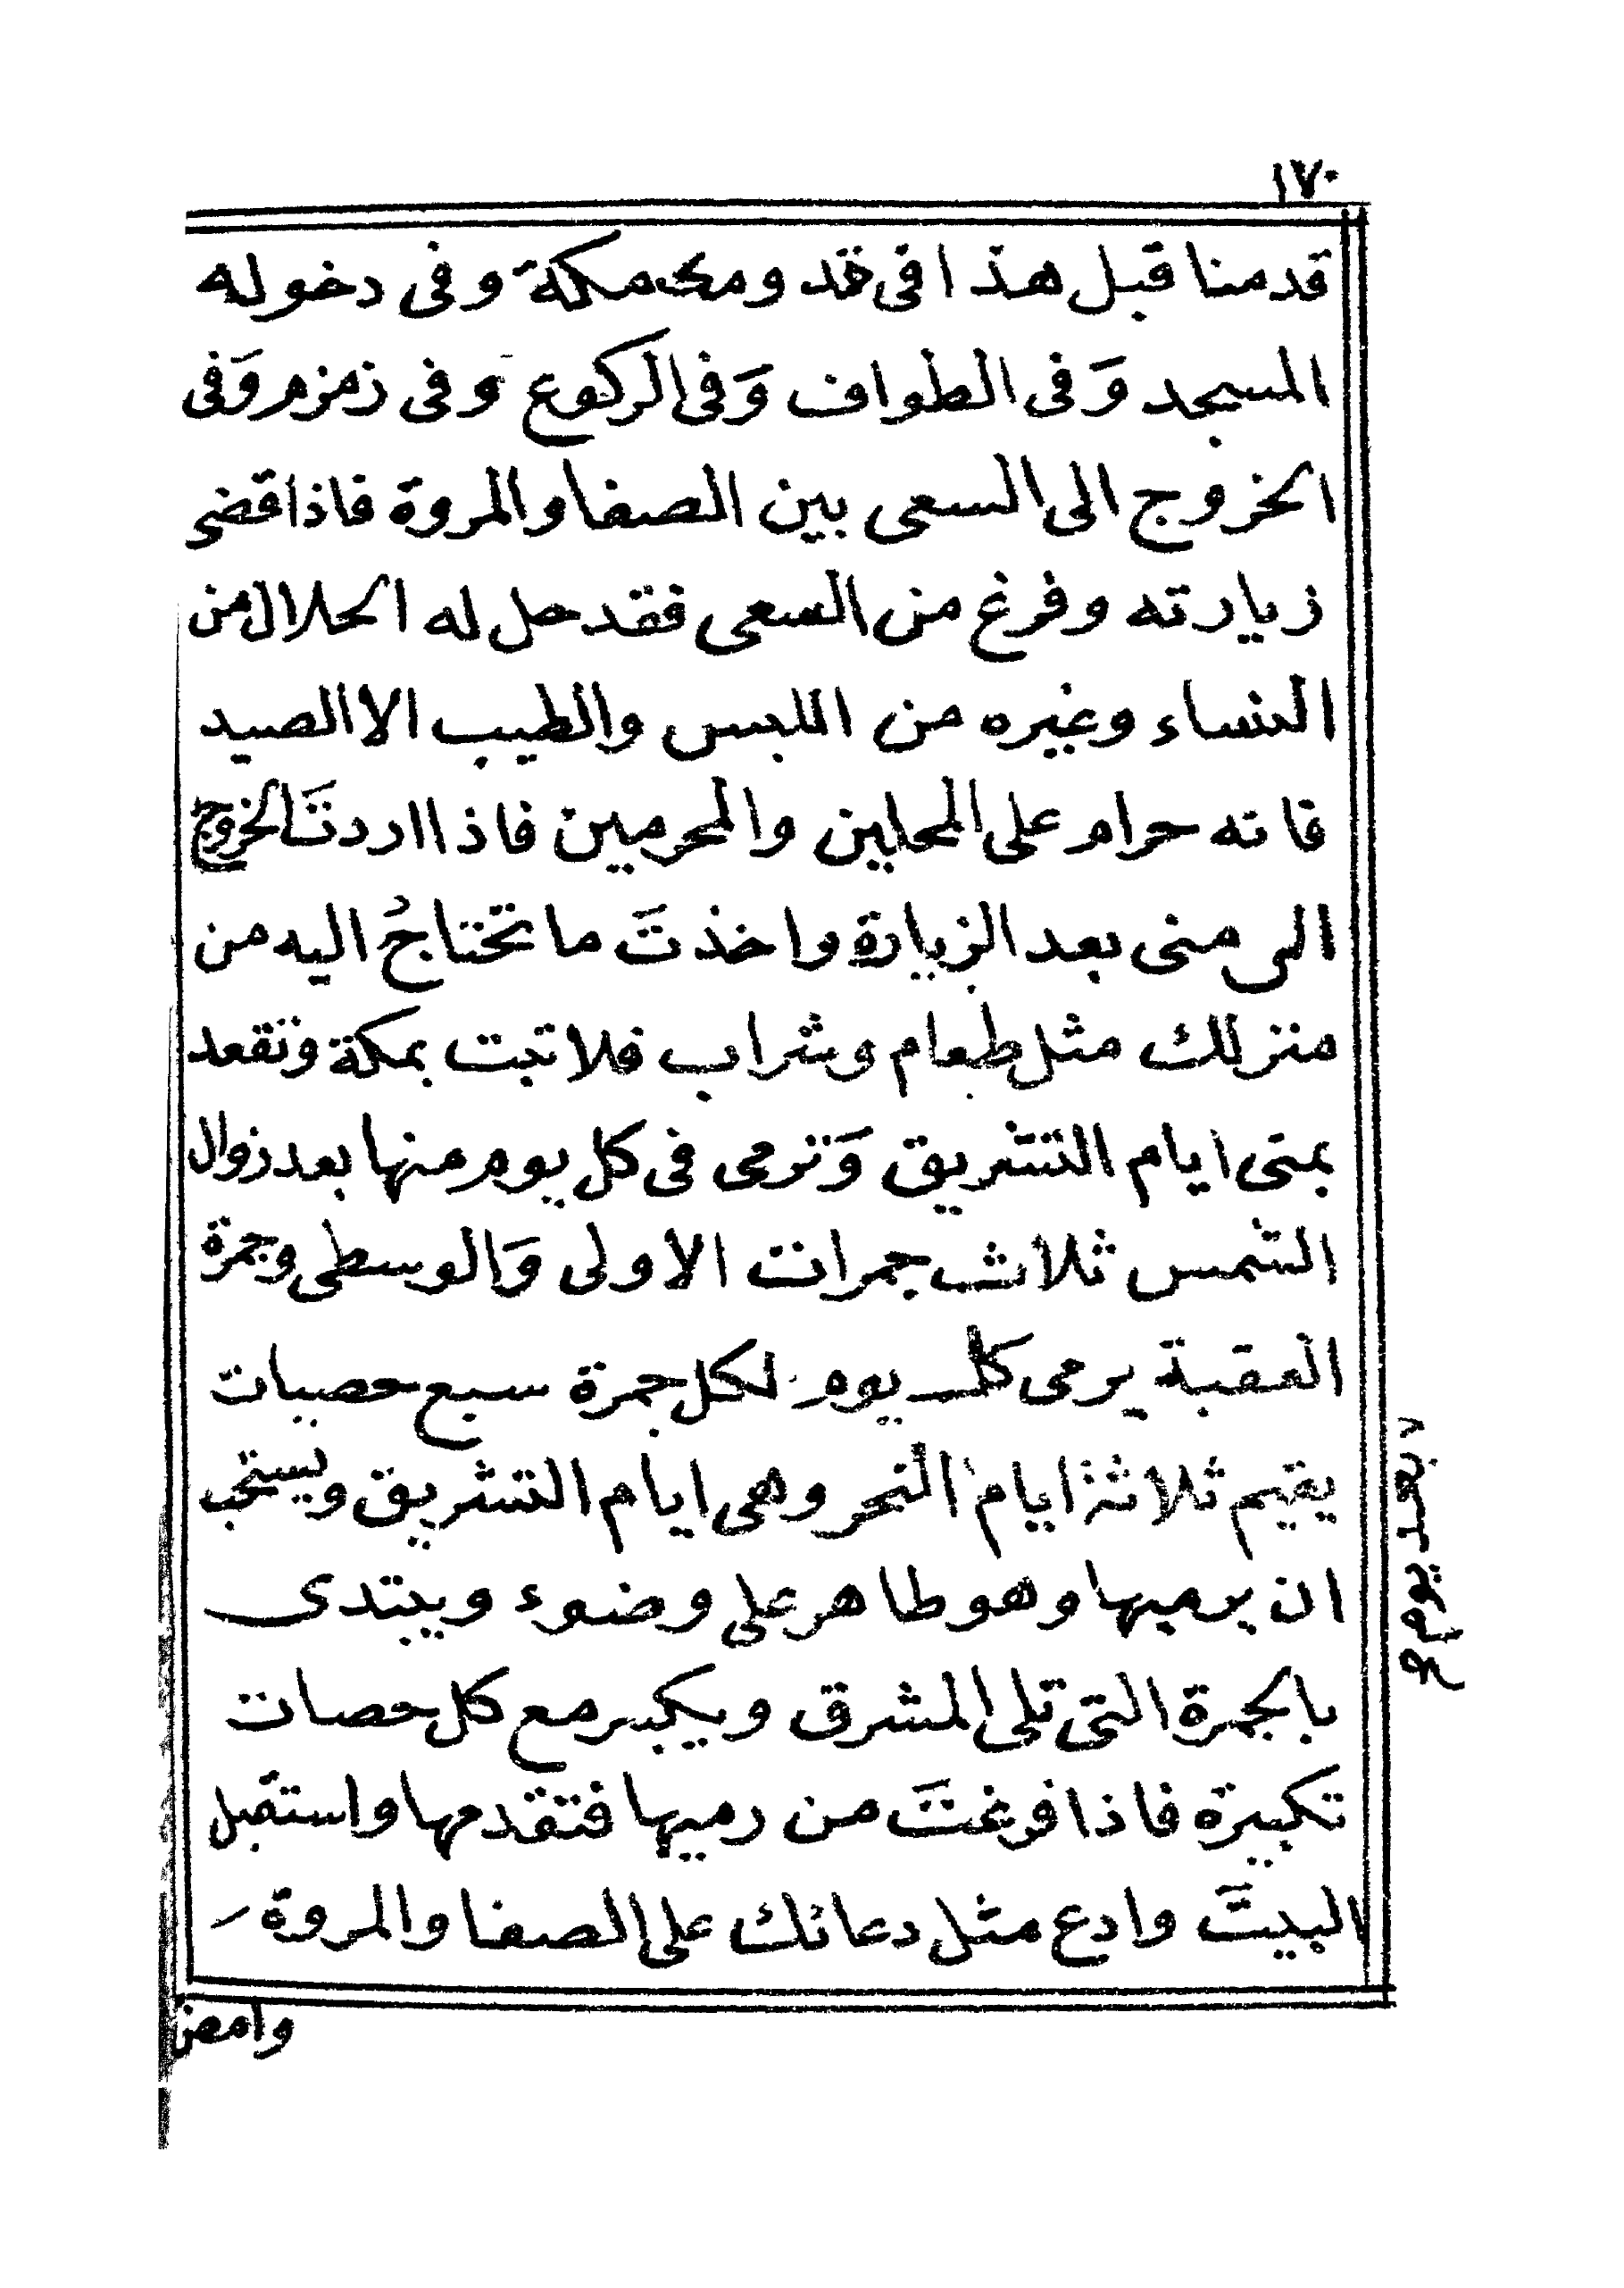 ١٧٠
قدمنا قبل هذا فى قدومكم مكة وفى دخوله
المسجد وَفى الطواف وَفى الركوع وفى زمزم وَفى
الخروج الى السعى بين الصفا والمروة فاذا قضى
زيارته وفرغ من السعى فقد حل له الحلال من
النساء وغيره من اللبس والطيب الا الصيد
فانه حرام على المحلين والمحرمين فاذا اردتَ الخروج
الى منى بعد الزيارة واخذتَ ما تحتاجُ اليه من
منزلك مثل طعام وشراب فلا تبت بمكة وتقعد
بمنى ايام التشريق وَترمى فى كل يوم منها بعد زوال
الشمس ثلاث جمرات الاولى وَالوسطى وجمرة
العقبة يرمى كل يوم لكل جمرة سبع حصيات
يقيم ثلاثة ايام النحر وهى ايام التشريق ويستحب
بعد يوم صح
ان يرميها وهو طاهر على وضوء ويبتدى
بالجمرة التى تلى المشرق ويكبر مع كل حصات
تكبيرة فاذا فرغتَ من رميها فتقدمها واستقبل
البيتَ وادع مثل دعائك على الصفا والمروة
وامض